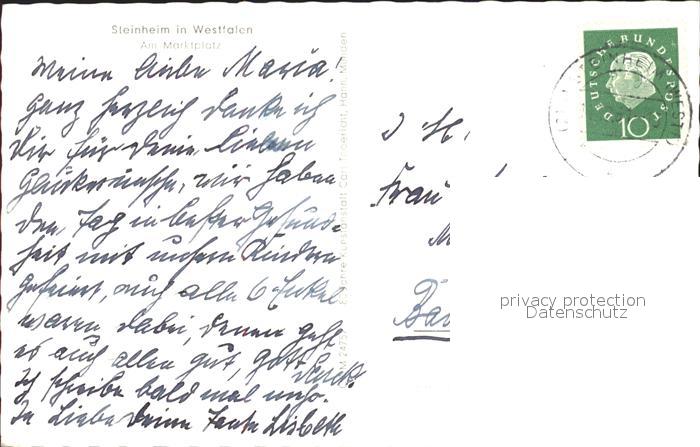 Steinheim in Westfalen
Am Marktplatz
Meine liebe Maria!
Ganz herzlich danke ich
Dir für Deine lieben
Glückwünsche, wir haben
den Tag in bester Gesund-
heit mit unsern Kindern
gefeiert, auch alle 6 Enkel
waren dabei, denen geht
es auch allen gut, Gott
Dank.
Ich schreibe bald mal mehr.
In Liebe Deine Tante Lisbeth
DEUTSCHE BUNDESPOST
10
Frau
privacy protection
Datenschutz